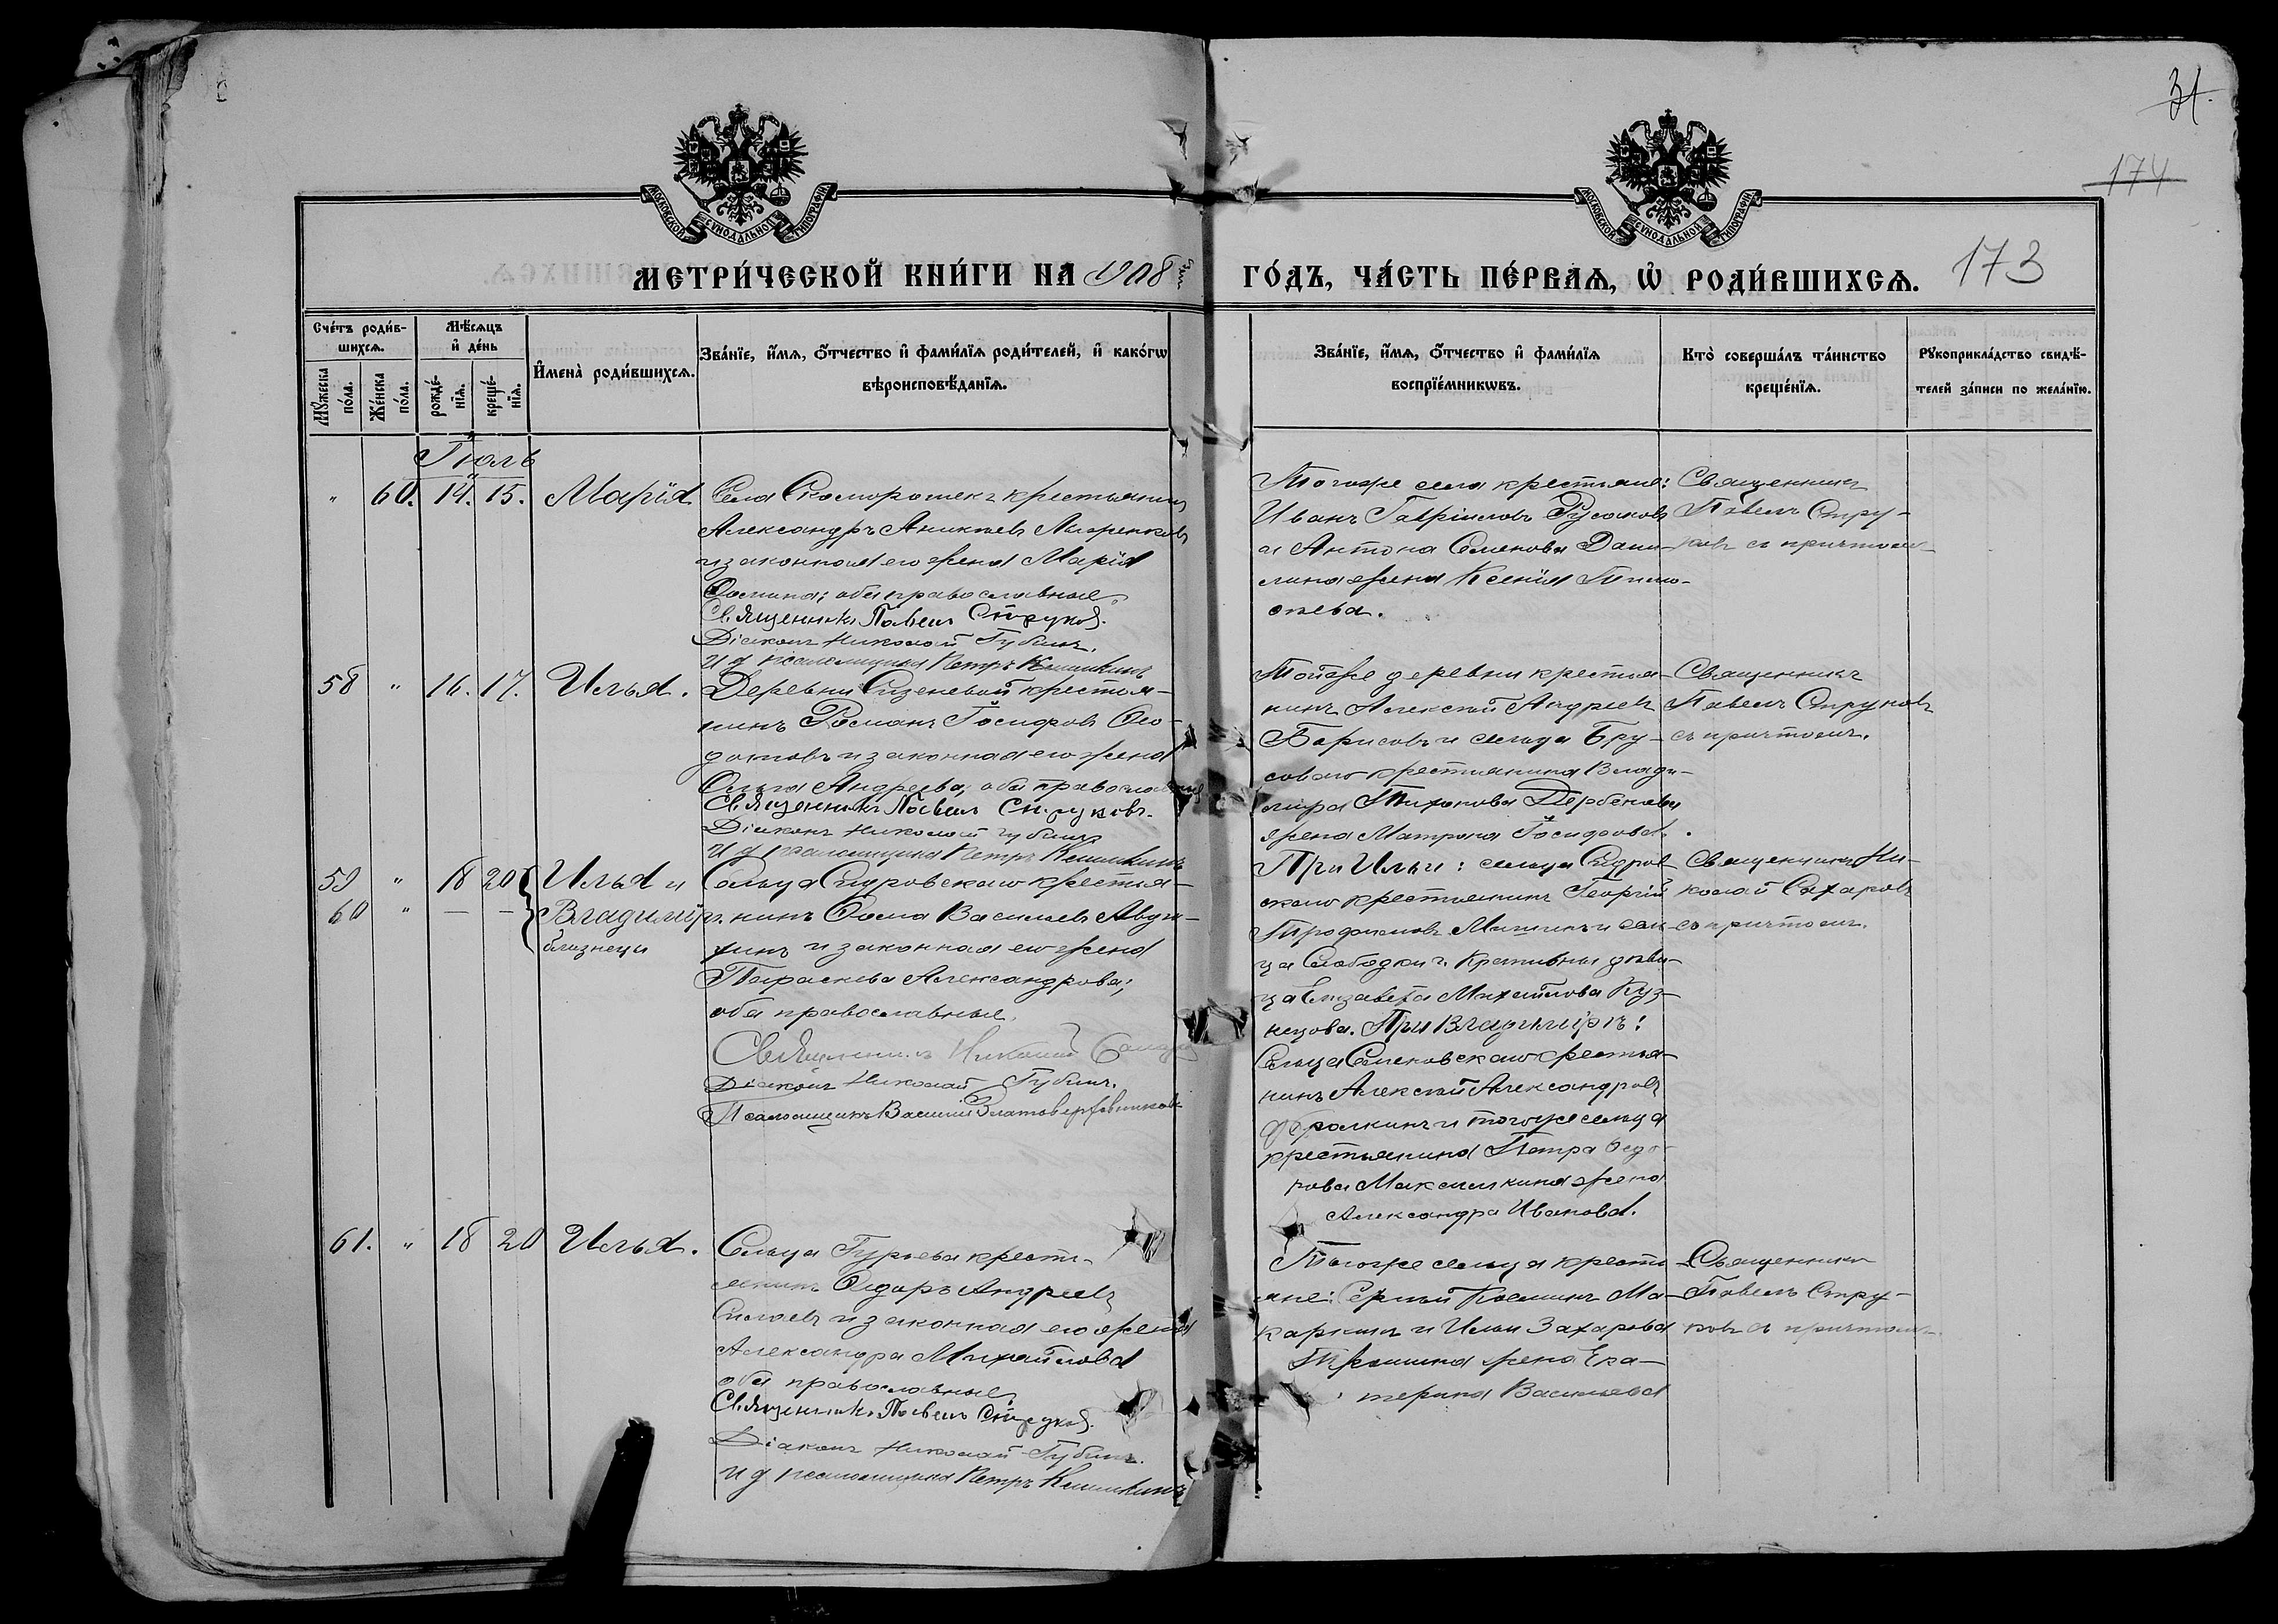 31.
174
173
МОСКОВСКОЙ СѴНОДАЛЬНОЙ ТИПОГРАФІИ
МОСКОВСКОЙ СѴНОДАЛЬНОЙ ТИПОГРАФІИ
МЕТРИ́ЧЕСКОЙ КНИ́ГИ НА 1908й
ГО́ДЪ, ЧА́СТЬ ПЕ́РВАЯ, Ѡ РОДИ́ВШИХСѦ.
Сче́тъ роди́в-
шихсѧ.
Мꙋ́жеска по́ла.
Же́нска по́ла.
Мѣ́сѧцъ
и҆ де́нь
рожде́-
нїѧ.
креще́-
нїѧ.
И҆мена̀ роди́вшихсѧ.
Зва́нїе, и҆́мѧ, ѻ҆́тчество и҆ фами́лїѧ роди́телей, и҆ како́гѡ
вѣроисповѣ́данїѧ.
Зва́нїе, и҆́мѧ, ѻ҆́тчество и҆ фами́лїѧ
воспрїе́мникѡвъ.
Кто̀ соверша́лъ та́инство
креще́нїѧ.
Рꙋкоприкла́дство свидѣ́-
телей за́писи по жела́нїю.
Іюль
" 60. 14. 15. Марія
Села Скоморошекъ крестьянинъ
Александръ Аникіевъ
и законная его жена Марія
Ѳомина; оба православные.
Священникъ Павелъ Струковъ.
Діаконъ Николай Губинъ.
И д псаломщика Петръ
Тогоже села крестьяне:
Иванъ Гавріиловъ Русаковъ
и Антона Семенова Дани-
лина жена Ксенія Тимо-
ѳеева.
Священникъ
Павелъ Стру-
ковъ съ причтомъ
58 " 16. 17. Илья.
Деревни крестья-
нинъ Романъ Іосифовъ Ѳео-
и законная его жена
Ольга Андреева; оба православные
Священникъ Павелъ Струковъ.
Діаконъ Николай Губинъ
И д псаломщика Петръ
Тойже деревни крестья-
нинъ Алексѣй Андреевъ
Борисовъ и сельца Бру-
сового крестьянина Влади-
мира Тихонова Дербенева
жена Матрона Іосифова.
Священникъ
Павелъ Струковъ
съ причтомъ.
59 " 18 20 Илья и
60 " — — Владиміръ.
близнецы
Сельца Сидровского крестья-
нинъ Ѳома Васильевъ
и законная его жена
Параскева Александрова;
оба православные.
Священникъ Николай
Діаконъ Николай Губинъ.
Псаломщикъ Василій
При Ильи: сельца Сидров-
ского крестьянинъ Георгій
Трофимовъ Мишинъ и сель-
ца Слободки г. Крапивны дѣви-
ца Елизавета Михайлова Куз-
нецова. При Владимірѣ:
Сельца Семеновского крестья-
нинъ Алексѣй Александровъ
Фролкинъ и тогоже сельца
крестьянина Петра Ѳедо-
рова жена
Александра Иванова.
Священникъ Ни-
колай Сахаровъ
съ причтомъ.
61. " 18 20 Илья.
Сельца Гурьева кресть-
янинъ Ѳедоръ Андреевъ
и законная его жена
Александра Михайлова
оба православные.
Священникъ Павелъ Струковъ.
Діаконъ Николай Губинъ.
И д псаломщика Петръ
Тогоже сельца кресть-
яне: Сергѣй Козминъ Ма-
каркинъ и Ильи Захарова
Трошина жена Ека-
терина Васильева
Священникъ
Павелъ Стру-
ковъ съ причтомъ